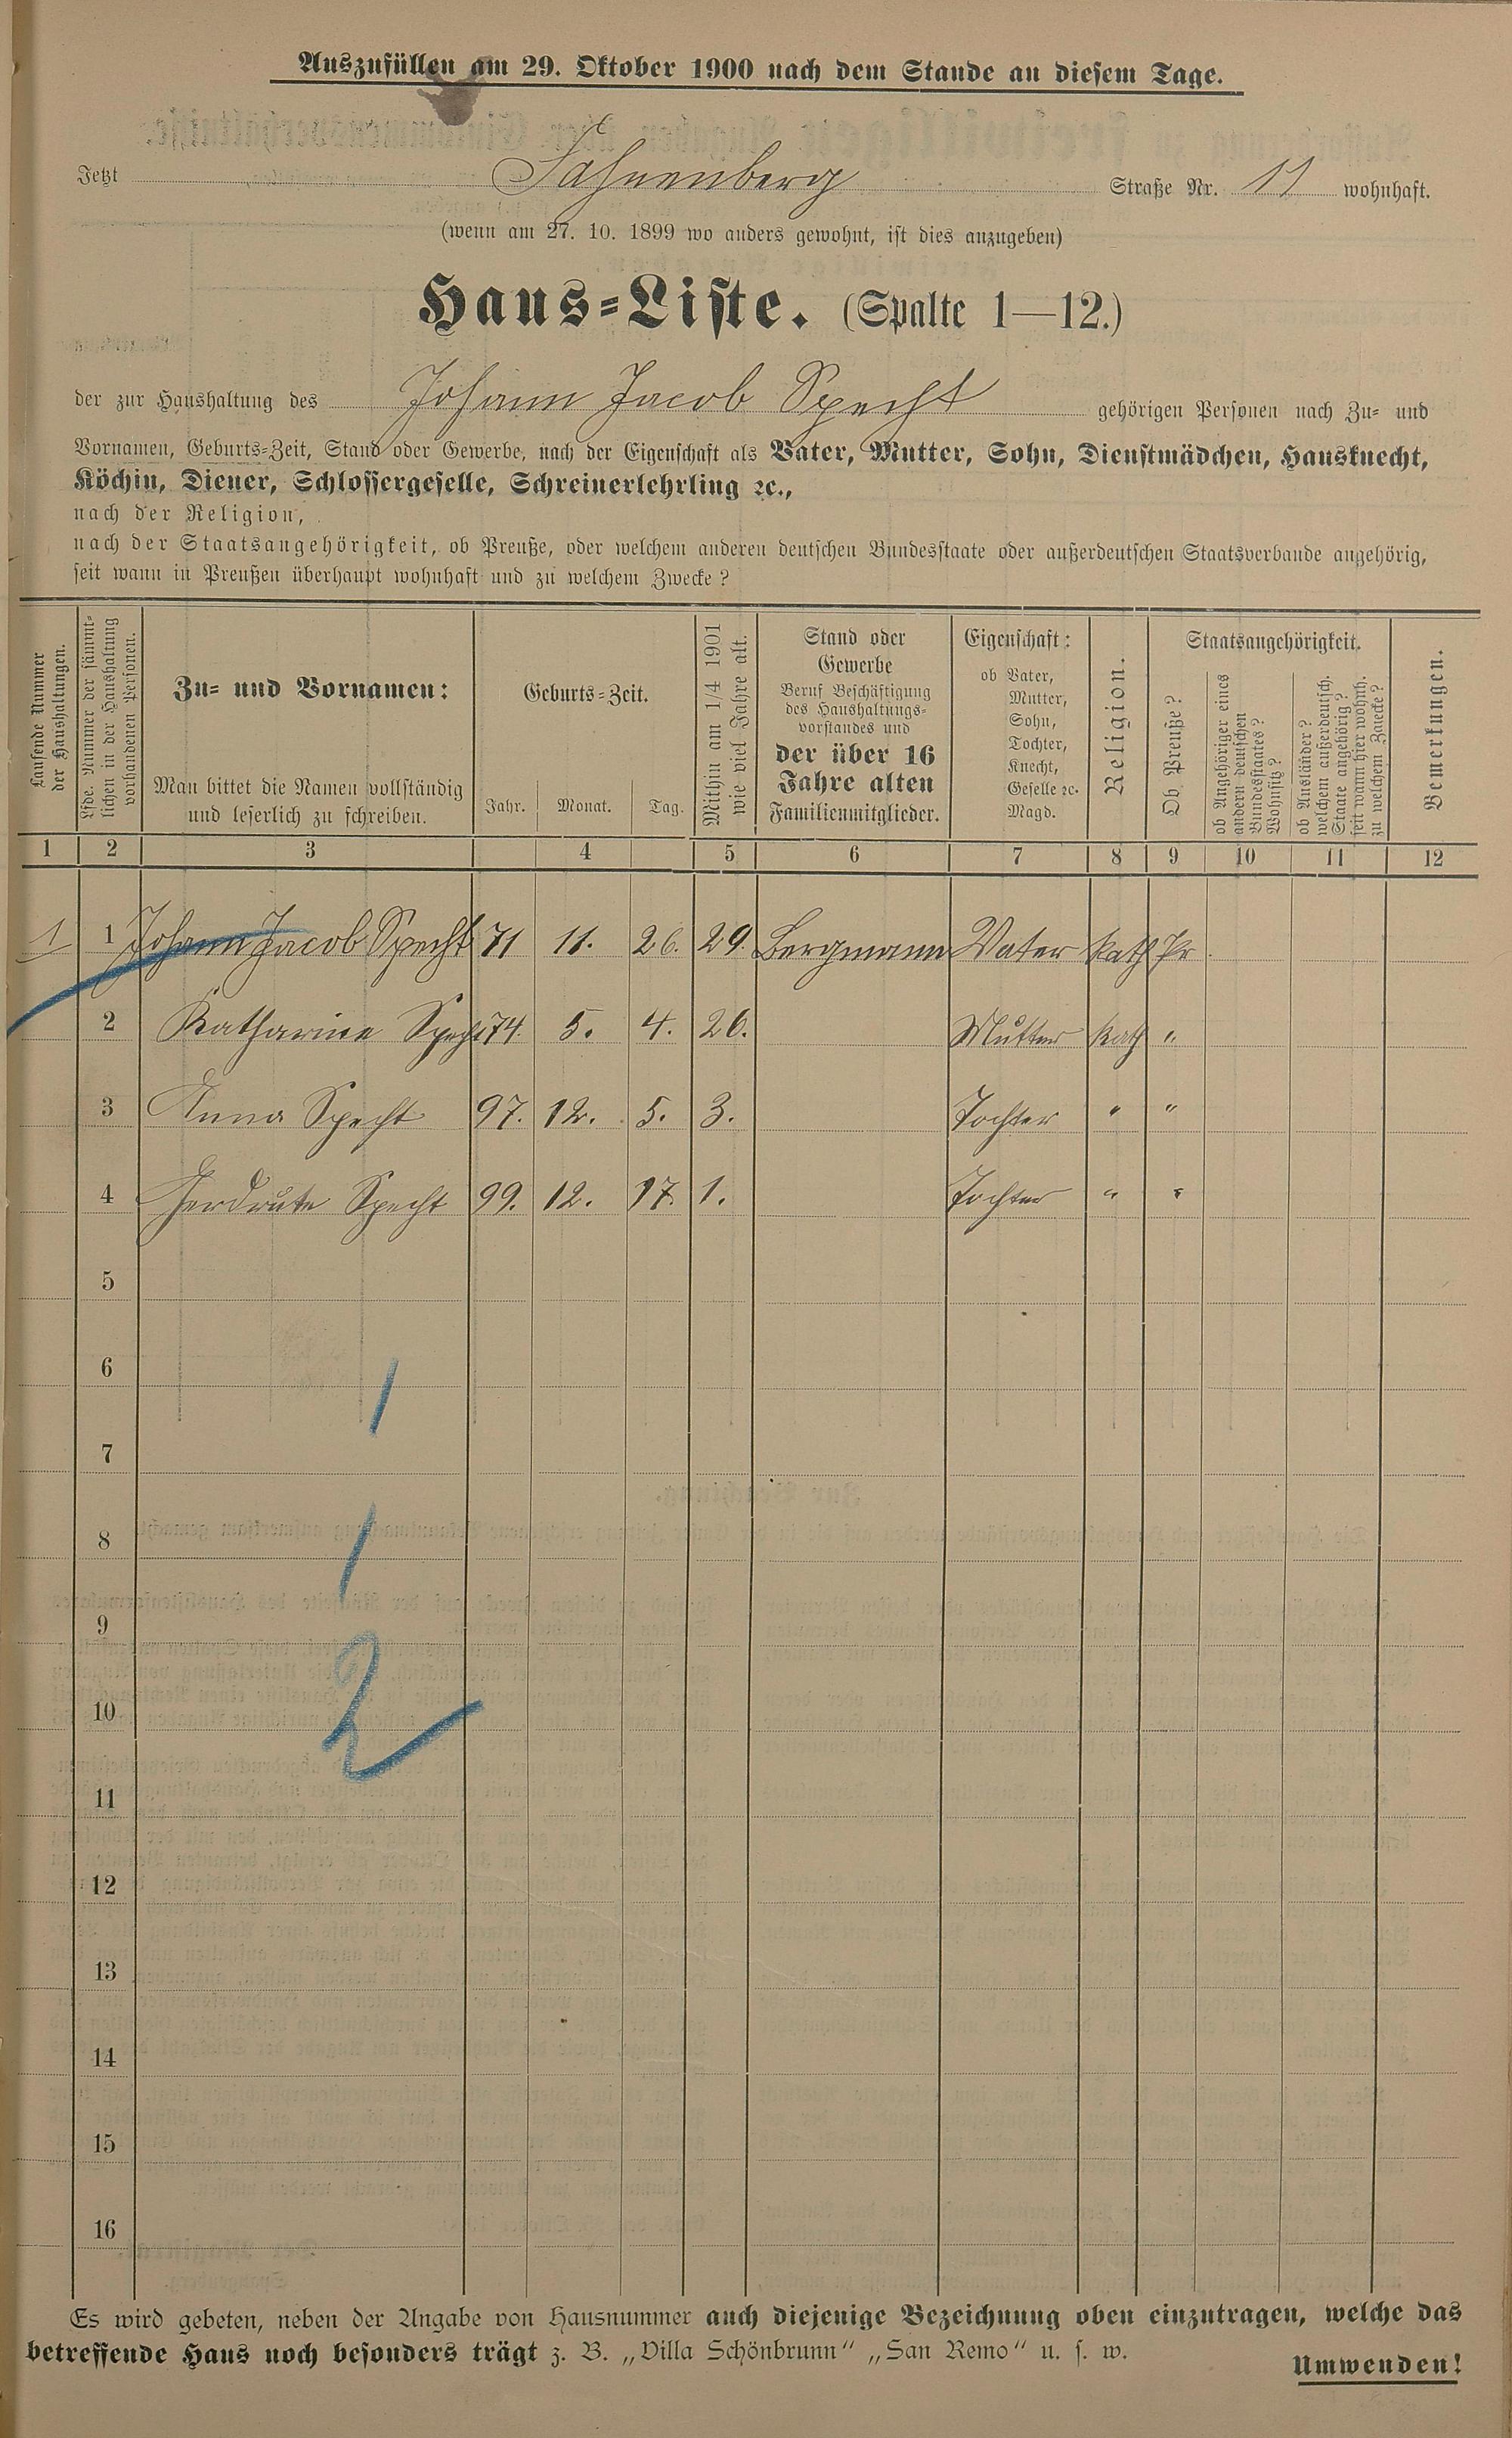 Auszufüllen am 29. Oktober 1900 nach dem Stande an diesem Tage.
Jetzt Fahnenberg Straße Nr. 11 wohnhaft.
(wenn am 27. 10. 1899 wo anders gewohnt, ist dies anzugeben)
Haus-Liste. (Spalte 1—12.)
der zur Haushaltung des Johann Jacob Specht gehörigen Personen nach Zu- und
Vornamen, Geburts-Zeit, Stand oder Gewerbe, nach der Eigenschaft als Vater, Mutter, Sohn, Dienstmädchen, Hausknecht,
Köchin, Diener, Schlossergeselle, Schreinerlehrling ꝛc.,
nach der Religion,
nach der Staatsangehörigkeit, ob Preuße, oder welchem anderen deutschen Bundesstaate oder außerdeutschen Staatsverbande angehörig,
seit wann in Preußen überhaupt wohnhaft und zu welchem Zwecke?
Laufende Nummer
der Haushaltungen.
Lfde. Nummer der sämmt-
lichen in der Haushaltung
vorhandenen Personen.
Zu- und Vornamen:
Man bittet die Namen vollständig
und leserlich zu schreiben.
Geburts-Zeit.
Jahr. Monat. Tag.
Mithin am 1/4 1901
wie viel Jahre alt.
Stand oder
Gewerbe
Beruf Beschäftigung
des Haushaltungs-
vorstandes und
der über 16
Jahre alten
Familienmitglieder.
Eigenschaft:
ob Vater,
Mutter,
Sohn,
Tochter,
Knecht,
Geselle ꝛc.
Magd.
Religion.
Staatsangehörigkeit.
Ob Preuße?
ob Angehöriger eines
andern deutschen
Bundesstaates?
Wohnsitz?
ob Ausländer?
welchem außerdeutsch.
Staate angehörig?
seit wann hier wohnh.
zu welchem Zwecke?
Bemerkungen.
1 2 3 4 5 6 7 8 9 10 11 12
1 1 Johann Jacob Specht 71 11. 26. 29. Bergmann Vater kath Pr
2 Katharine Specht 74. 5. 4. 26. Mutter kath "
3 Anna Specht 97. 12. 5. 3. Tochter " "
4 Gerdrute Specht 99. 12. 17. 1. Tochter " "
5
6
1
7
8
1
9
10
2
11
12
13
14
15
16
Es wird gebeten, neben der Angabe von Hausnummer auch diejenige Bezeichnung oben einzutragen, welche das
betreffende Haus noch besonders trägt z. B. „Villa Schönbrunn" „San Remo" u. s. w.
Umwenden!